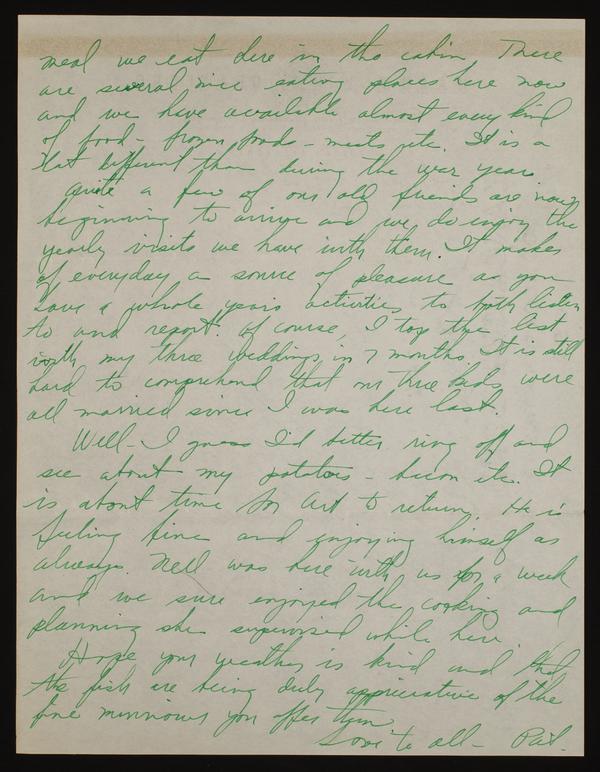 meal we eat here in the cabin. There
are several nice eating places here now
and we have available almost every kind
of food - frozen foods - meats etc. It is a
lot different than during the war years.
Quite a few of our old friends are now
beginning to arrive and we do enjoy the
yearly visits we have with them. It makes
of everyday a source of pleasure as you
have a whole years activities to both listen
to and report. Of course, I top the list
with my three weddings in 7 months. It is still
hard to comprehend that our three kids were
all married since I was here last.
Well - I guess I'd better ring off and
see about my potatoes - bacon etc. It
is about time for Art to return. He is
feeling fine and enjoying himself as
always. Nell was here with us for a week
and we sure enjoyed the cooking and
planning she supervised while here.
Hope your weather is kind and that
the fish are being duly appreciative of the
fine minnows you offer them.
Love to all - Pat.